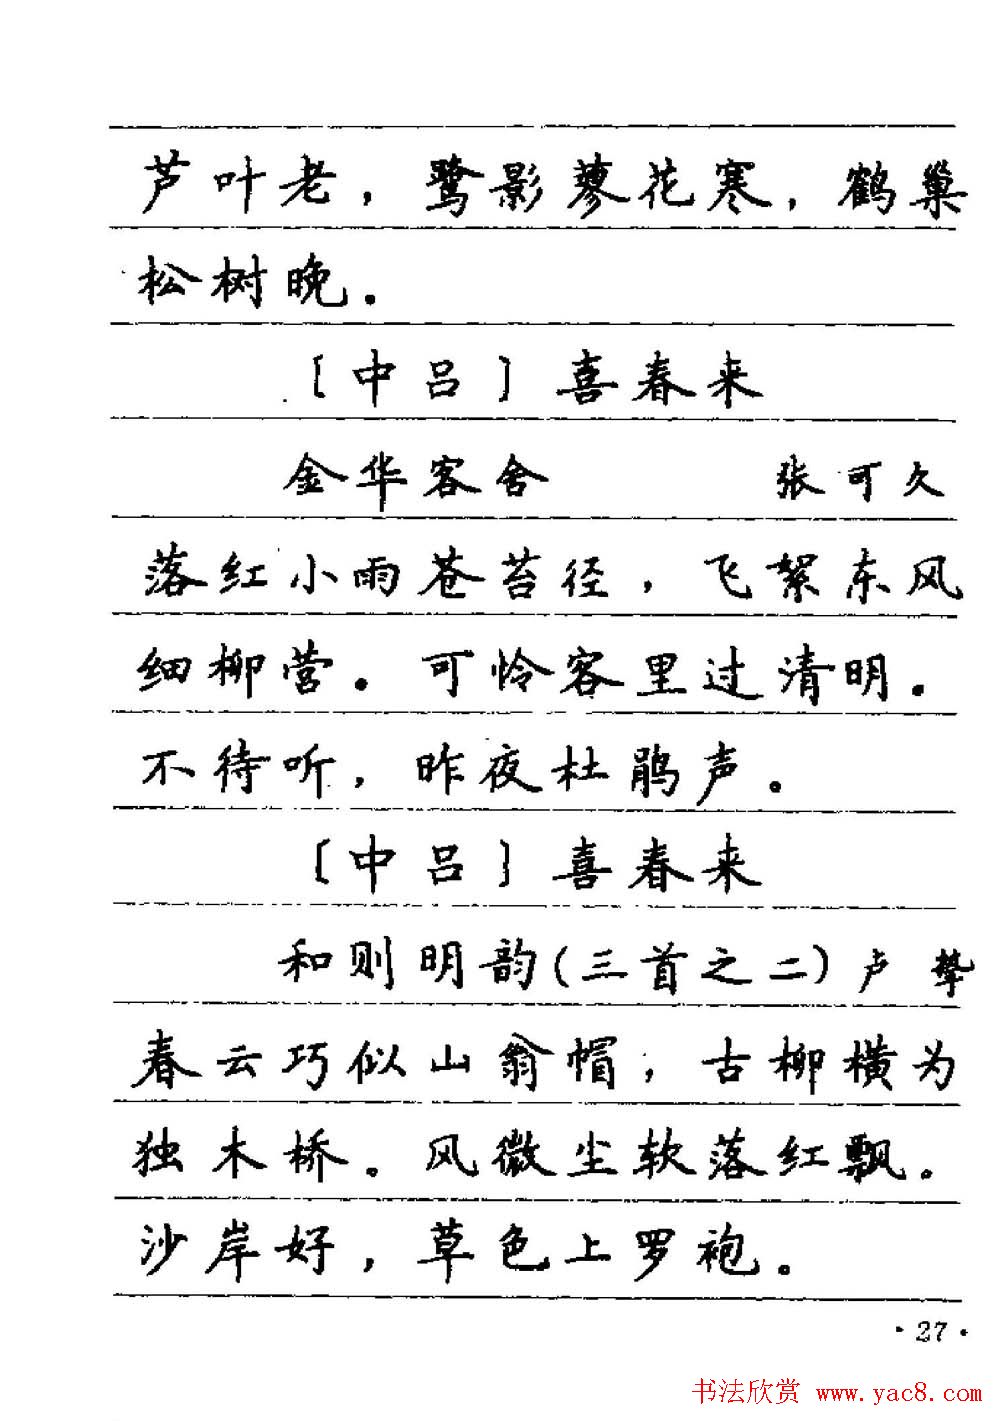 芦叶老，鹭影蓼花寒，鹤巢
松树晚。
〔中吕〕喜春来
金华客舍 张可久
落红小雨苍苔径，飞絮东风
细柳营。可怜客里过清明。
不待听，昨夜杜鹃声。
〔中吕〕喜春来
和则明韵(三首之二) 卢挚
春云巧似山翁帽，古柳横为
独木桥。风微尘软落红飘。
沙岸好，草色上罗袍。
·27·
书法欣赏 www.yac8.com